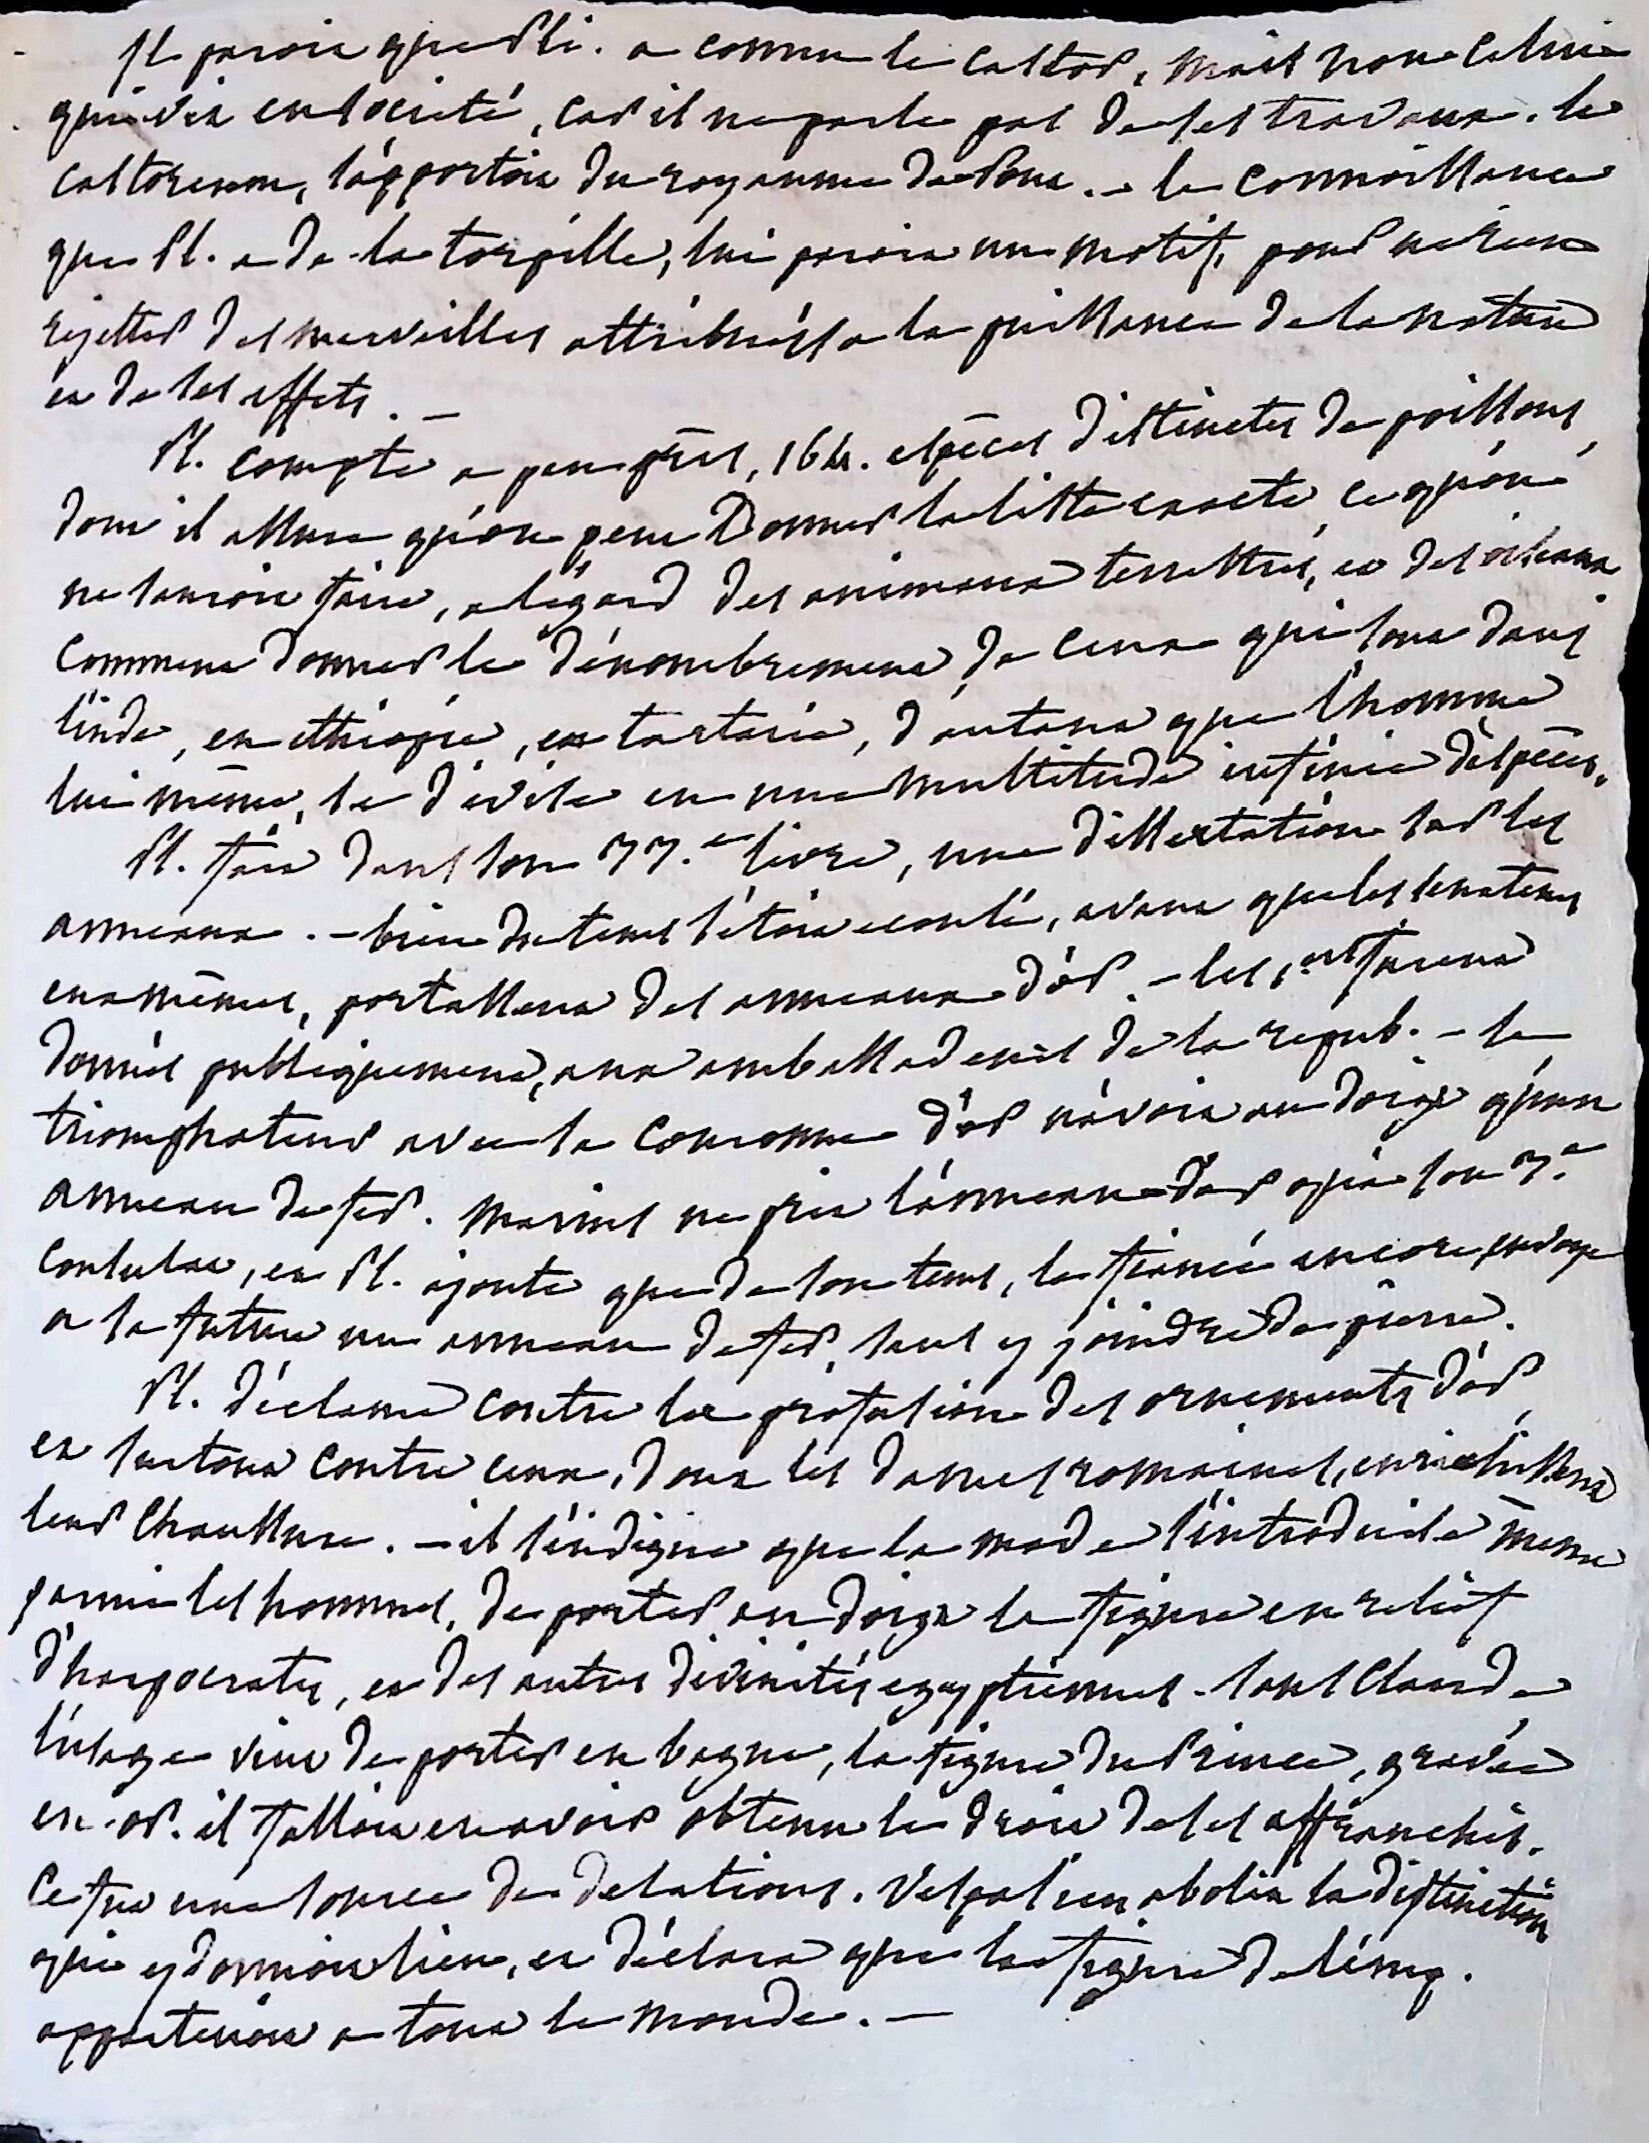 Il paroit que Pli. a connu le castor, mais non celui
qui vit en société, car il ne parle pas de ses travaux. le
castoreum, s'apportoit du royaume de Pont. - la connoissance
que Pl. a de la torpille, lui paroit un motif, pour ne rien
rejetter des merveilles attribuées a la puissance de la nature
et de ses effets. -
Pl. compte a peu près, 164. espèces distinctes de poissons,
dont il assure qu'on peut donner la liste exacte, ce qu'on
ne sauroit faire, a l'égard des animaux terrestres, et des oiseaux
comment donner le dénombrement de ceux qui sont dans
l'inde, en ethiopie, en tartarie, d'autant que l'homme
lui même, se divise en une multitude infinie d'espèces.
Pl. fait dans son 33.e livre, une dissertation sur les
anneaux. - bien du tems s'étoit ecoulé, avant que les senateurs
eux mêmes, portassent des anneaux d'or. - les 1.ers furent
donnés publiquement, aux ambassadeurs de la repub. - le
triomphateur avec la couronne d'or n'avoit au doigt qu'un
anneau de fer. Marius ne prit l'anneau d'or qu'a son 3.e
consulat, et Pl. ajoute que de son tems, le fiancé encore, envoye
a sa future un anneau de fer, sans y joindre de pierre.
Pl. déclame contre la profusion des ornements d'or,
et surtout contre ceux, dont les dames romaines, enrichissent
leur chaussure. - il s'indigne que la mode s'introduise même
parmi les hommes, de porter au doigt la figure en relief
d'harpocrates, et des autres divinités egyptiennes. sous Claude
l'usage vint de porter en bague, la figure du Prince, gravée
en or. il falloit en avoir obtenu le droit de ses affranchis.
Ce fut une source de delations. Vespasien abolit la distinction
qui y donnoit lieu, et déclara que la figure de l'emp.
appartenoit a tout le monde. -